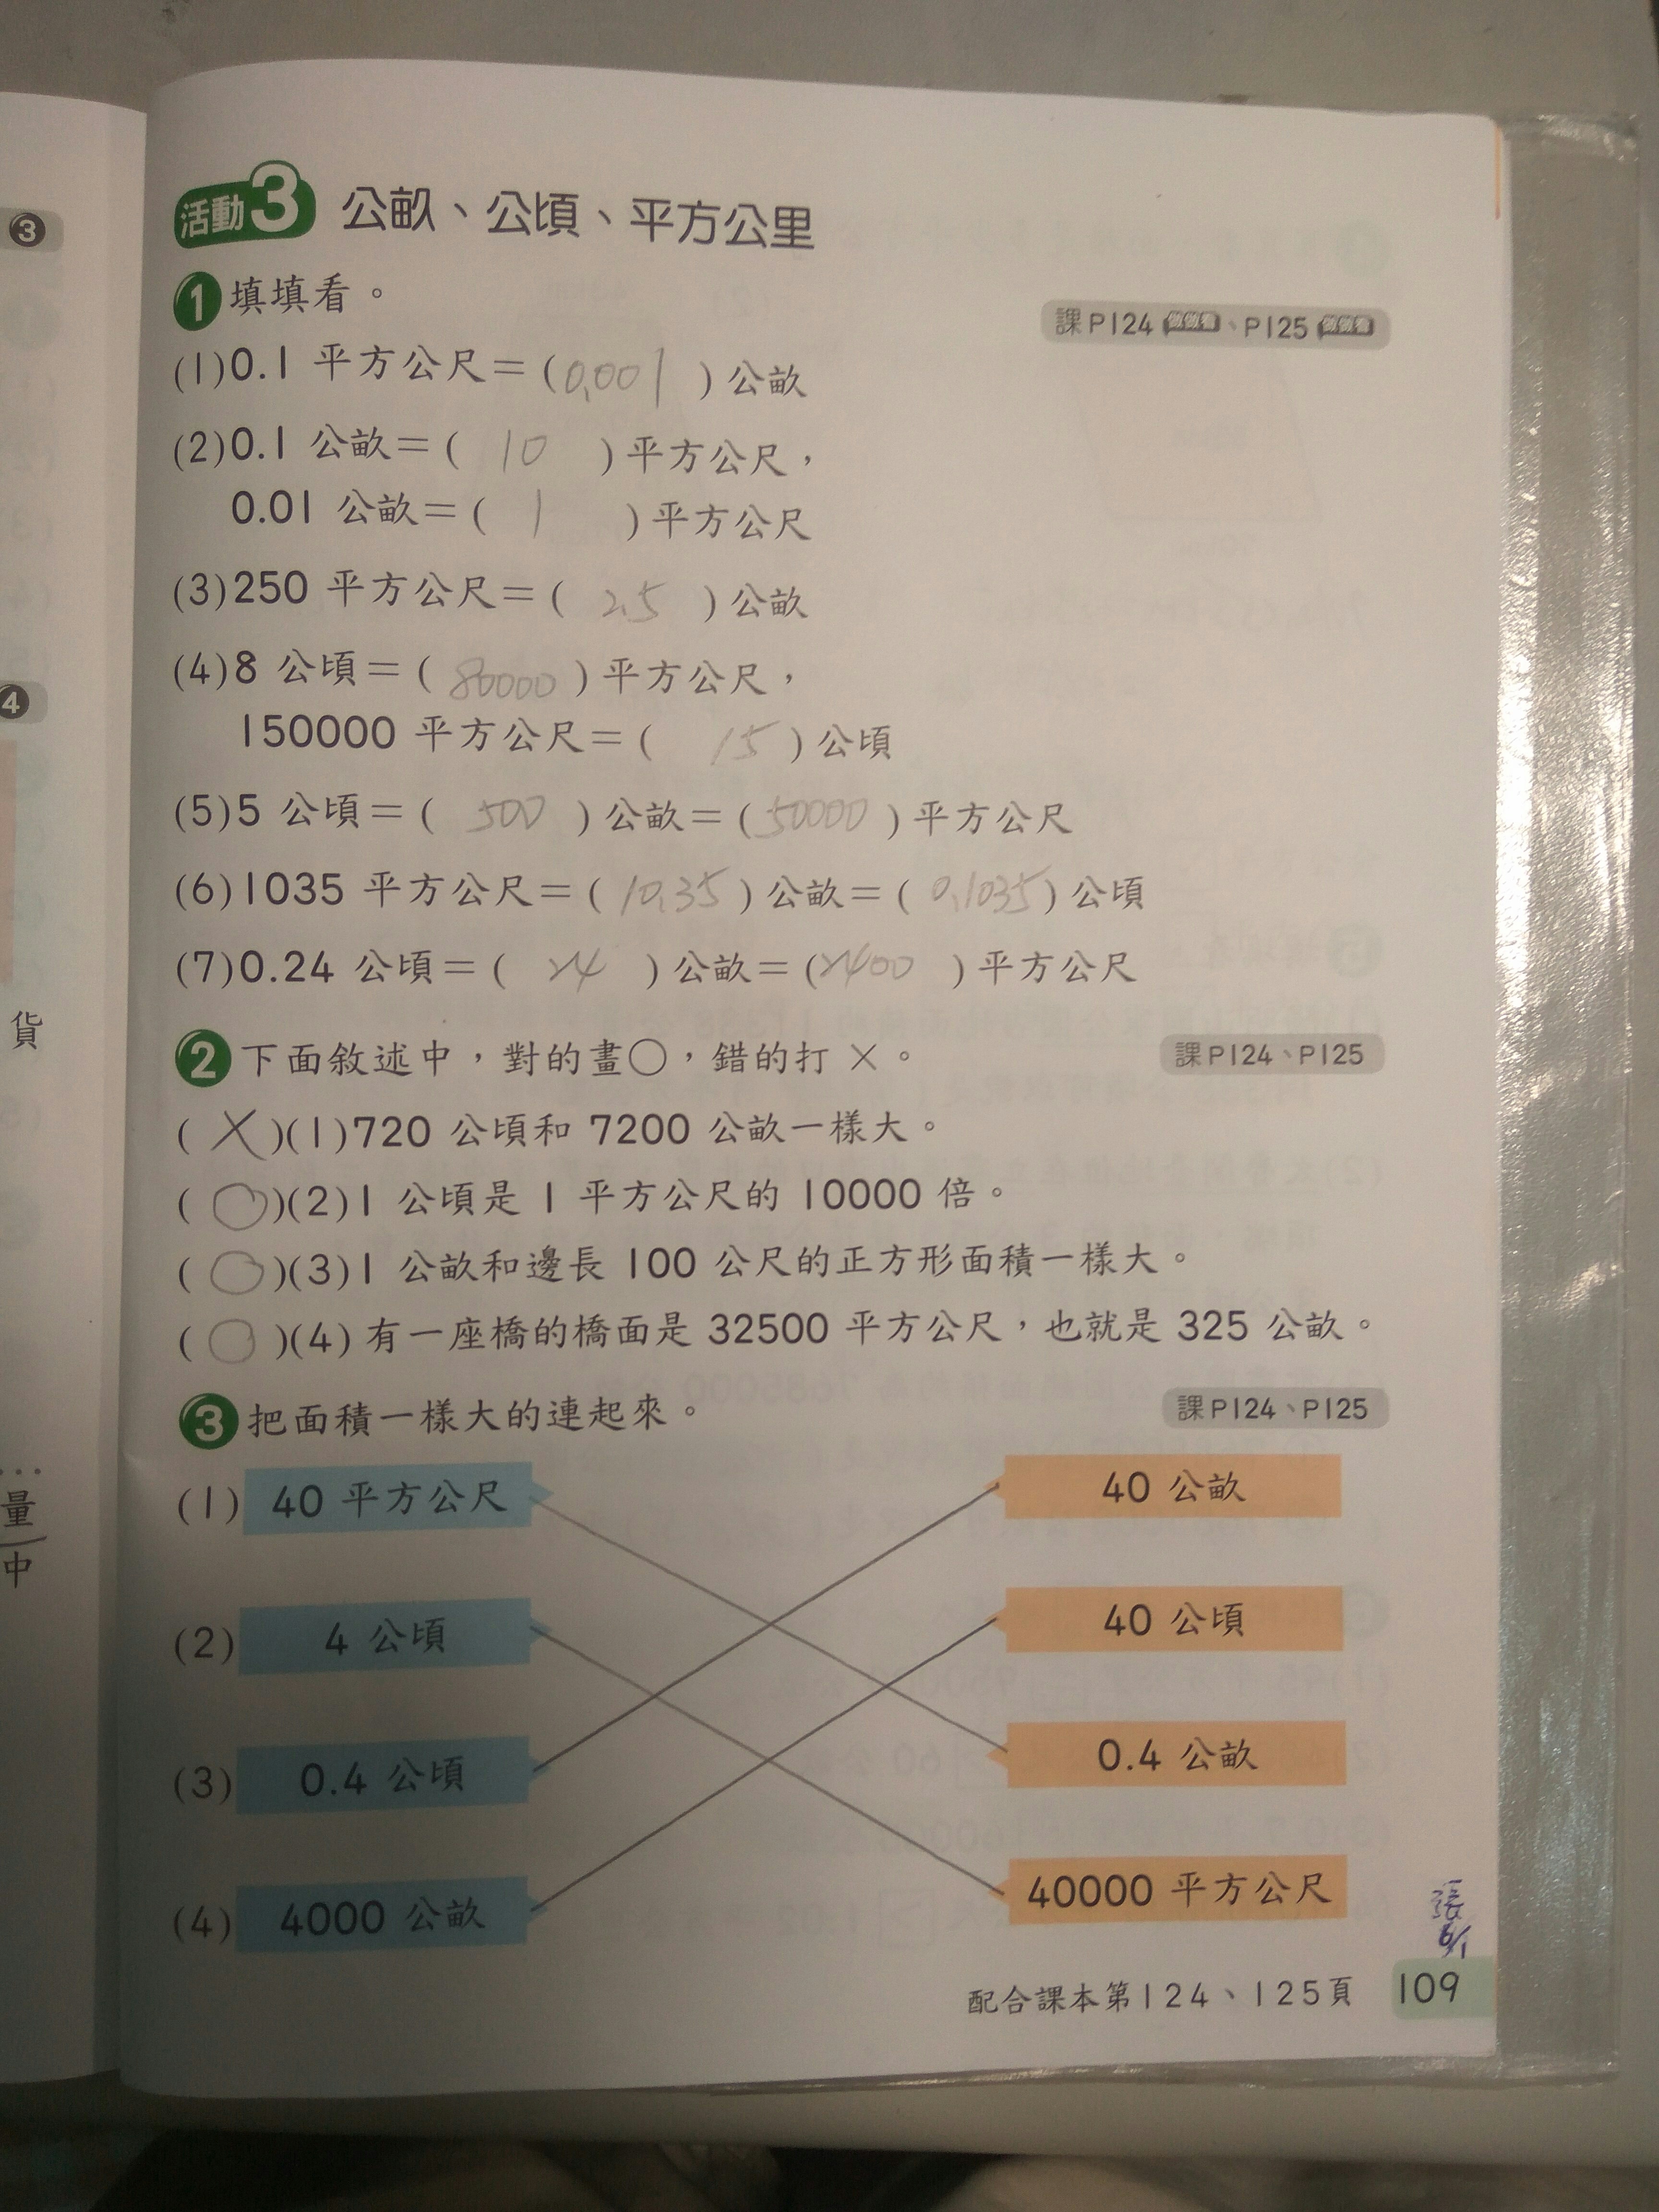 活動3 公畝、公頃、平方公里
1 填填看。
課P124 做做看、P125 做做看
(1)0.1 平方公尺=(0.001)公畝
(2)0.1 公畝=( 10 )平方公尺,
0.01 公畝=( 1 )平方公尺
(3)250 平方公尺=( 2.5 )公畝
(4)8 公頃=( 80000 )平方公尺,
150000 平方公尺=( 15 )公頃
(5)5 公頃=( 500 )公畝=( 50000 )平方公尺
(6)1035 平方公尺=( 10.35 )公畝=( 0.1035 )公頃
(7)0.24 公頃=( 24 )公畝=( 2400 )平方公尺
2 下面敘述中,對的畫○,錯的打 ×。 課P124、P125
( × )(1)720 公頃和 7200 公畝一樣大。
( ○ )(2)1 公頃是 1 平方公尺的 10000 倍。
( ○ )(3)1 公畝和邊長 100 公尺的正方形面積一樣大。
( ○ )(4)有一座橋的橋面是 32500 平方公尺,也就是 325 公畝。
3 把面積一樣大的連起來。 課P124、P125
(1) 40 平方公尺 40 公畝
(2) 4 公頃 40 公頃
(3) 0.4 公頃 0.4 公畝
(4) 4000 公畝 40000 平方公尺
張
配合課本第124、125頁 109
3
4
貨
量
中